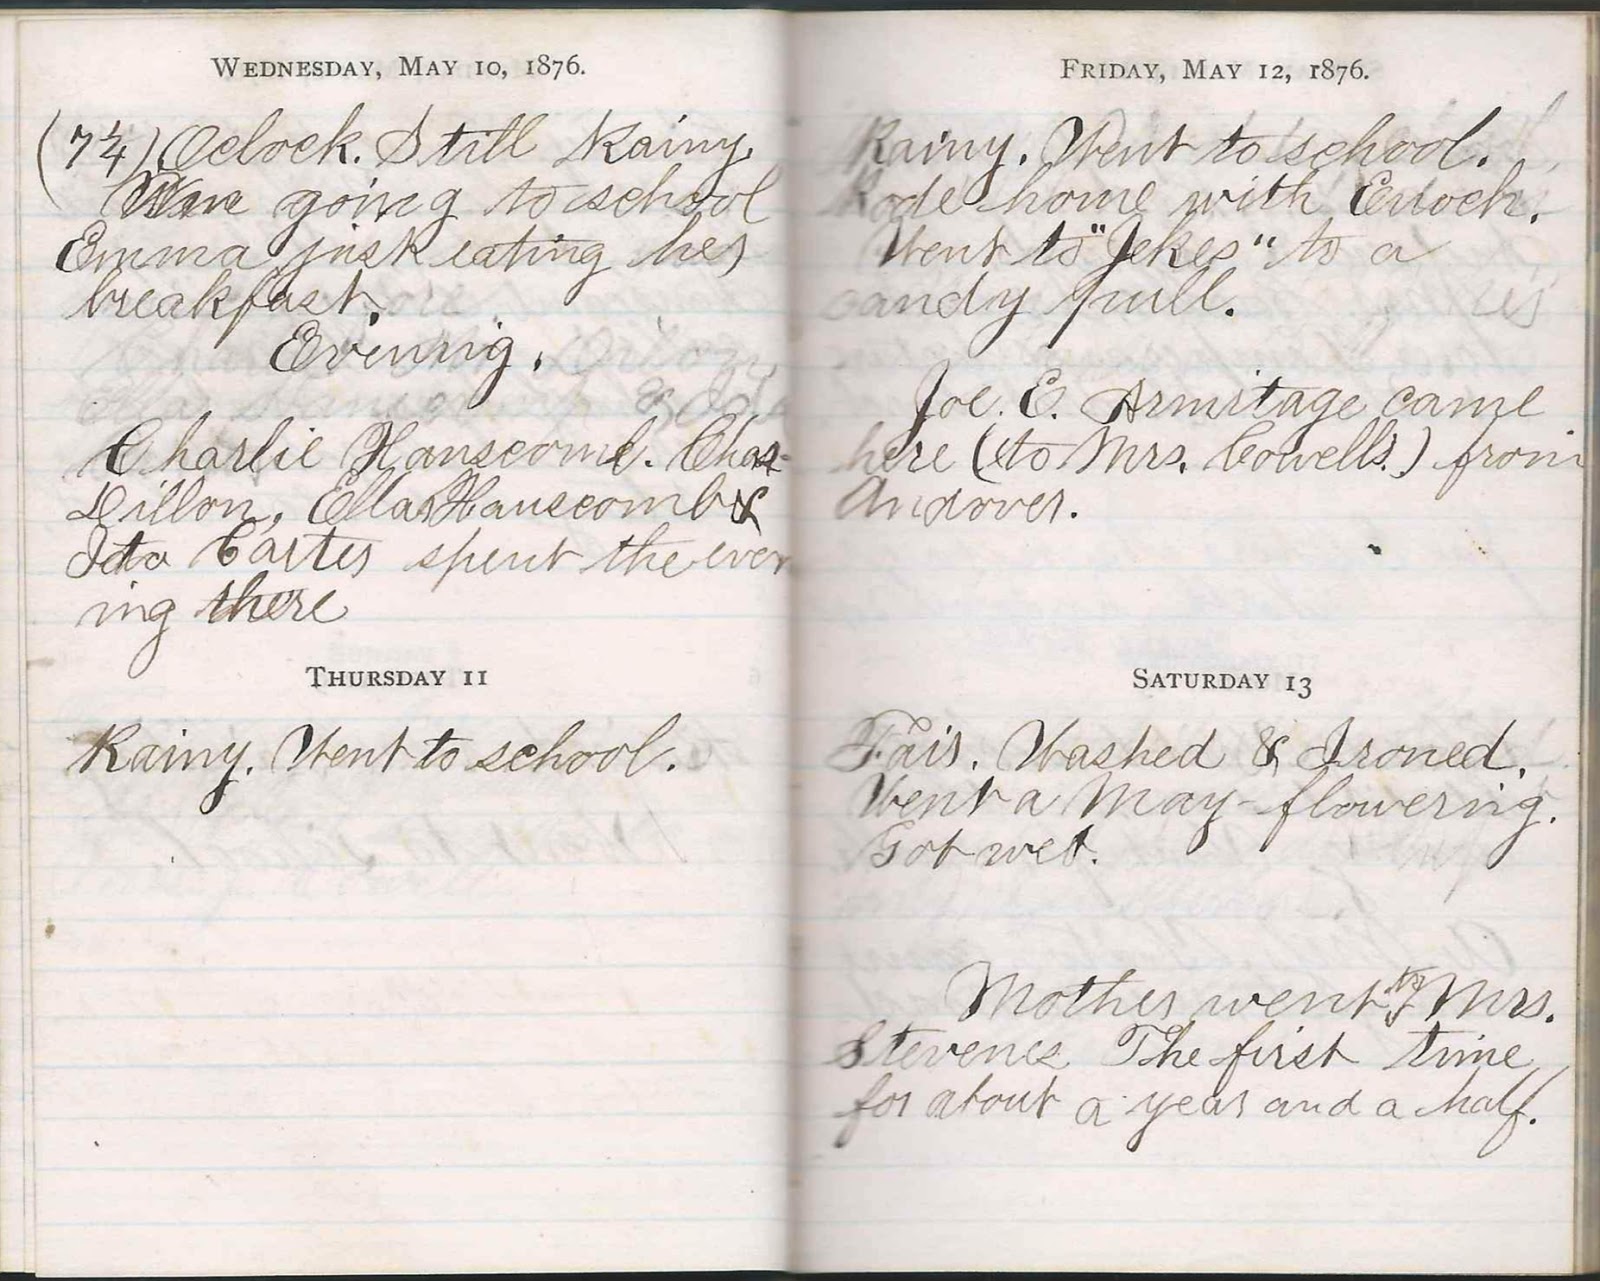 WEDNESDAY, MAY 10, 1876.
(7¼) Oclock. Still Rainy.
going to school
Emma just eating her
breakfast.
Evening.
Charlie Hanscomb. Chas-
Dillon, Ella Hanscomb &
Ida Carter spent the even
ing there
THURSDAY 11
Rainy. Went to school.
FRIDAY, MAY 12, 1876.
Rainy. Went to school.
Rode home with Enoch.
Went to "Jekes" to a
candy pull.
Joe. E. Armitage came
here (to Mrs. Cowells.) from
Andover.
SATURDAY 13
Fair. Washed & Ironed.
Went a May-flowering.
Got wet.
Mother went to Mrs.
Stevenes The first time
for about a year and a half.